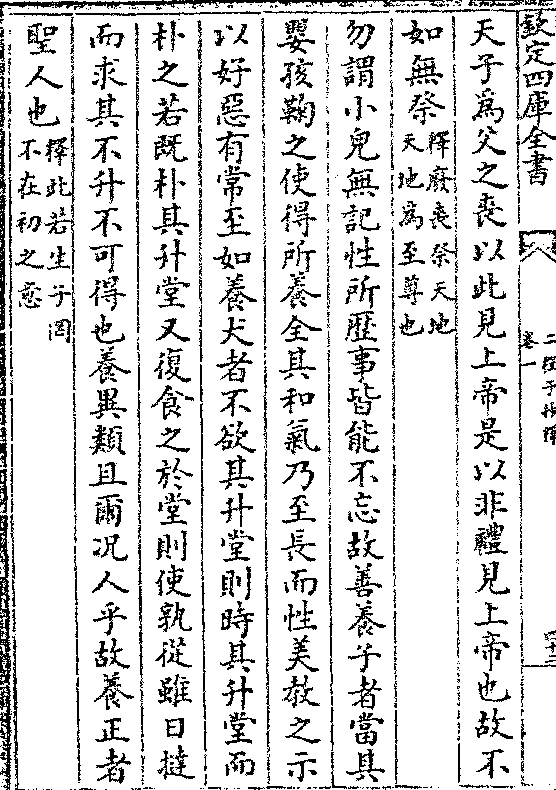 欽定四庫全書
卷一
二程子抄釋
四十三
天子為父之喪以此見上帝是以非禮見上帝也故不
如無祭釋廢喪祭天地天地為至尊也
勿謂小兒無記性所歴事皆能不忘故善養子者當其
嬰孩鞠之使得所養全其和氣乃至長而性美教之示
以好惡有常至如養犬者不欲其升堂則時其升堂而
朴之若既朴其升堂又復食之於堂則使孰從雖日撻
而求其不升不可得也養異類且爾况人乎故養正者
聖人也釋此若生子罔不在初之意